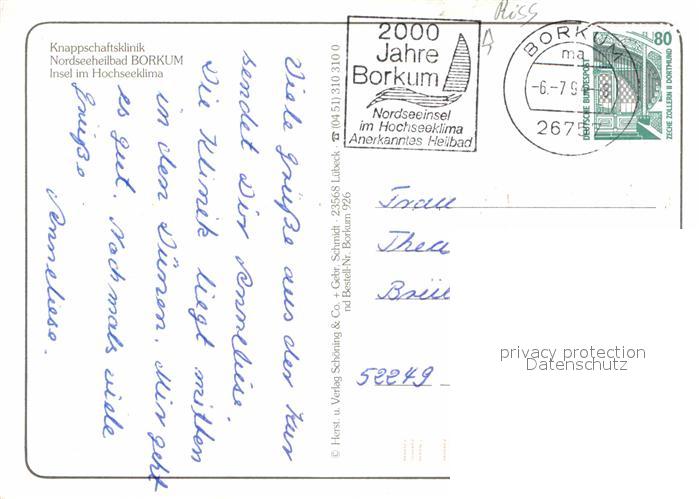 Riss
Knappschaftsklinik
Nordseeheilbad BORKUM
Insel im Hochseeklima
2000
Jahre
Borkum
Nordseeinsel
im Hochseeklima
Anerkanntes Heilbad
BORKUM
ma
-6.-7.9
2675
80
DEUTSCHE BUNDESPOST
ZECHE ZOLLERN II DORTMUND
Viele Grüße aus der Kur
sendet Dir Anneliese.
Die Klinik liegt mitten
in den Dünen. Mir geht
es gut. Nochmals viele
Grüße
Anneliese.
© Herst. u. Verlag Schöning & Co. + Gebr. Schmidt · 23568 Lübeck · ☎ (04 51) 310 310 0
nd Bestell-Nr. Borkum 926
Frau
Thea
52249
privacy protection
Datenschutz